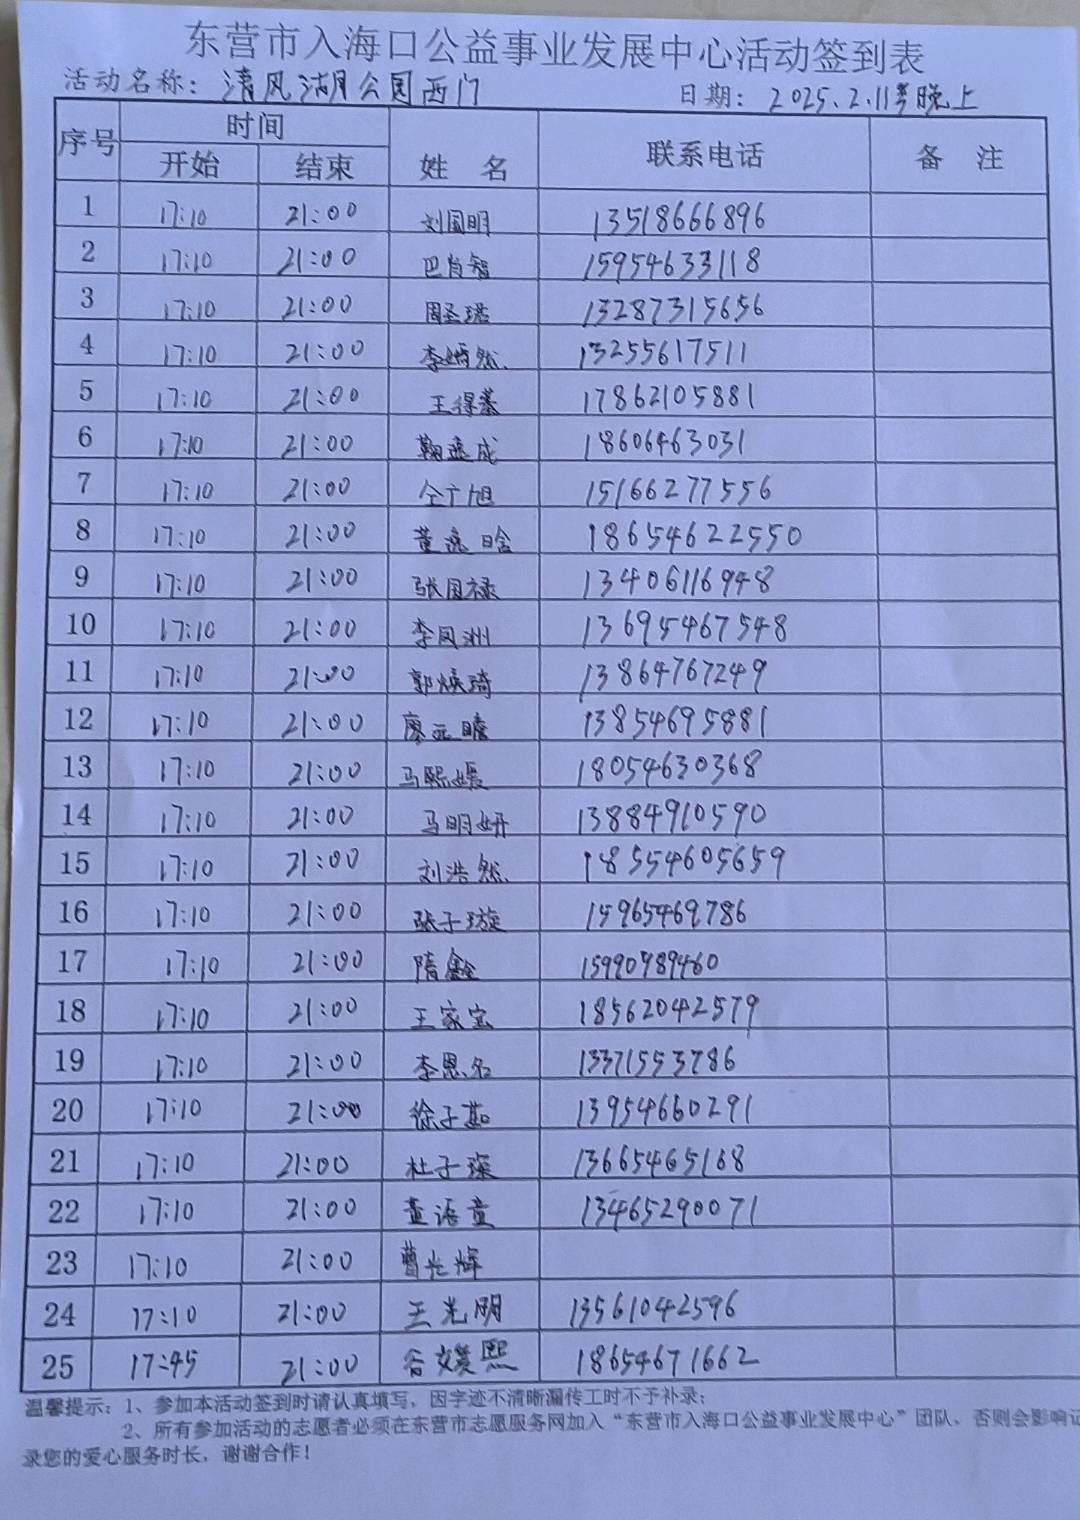 东营市入海口公益事业发展中心活动签到表
活动名称：清风湖公园西门 日期：2025.2.11号晚上
序号 时间 姓 名 联系电话 备 注
开始 结束
1 17:10 21:00 刘国明 13518666896
2 17:10 21:00 巴肖智 15954633118
3 17:10 21:00 周圣珺 13287315656
4 17:10 21:00 李嫣然 13255617511
5 17:10 21:00 王得蓁 17862105881
6 17:10 21:00 鞠逸成 18606463031
7 17:10 21:00 仝广旭 15166277556
8 17:10 21:00 董逸晗 18654622550
9 17:10 21:00 张国禄 13406116948
10 17:10 21:00 李凤洲 13695467548
11 17:10 21:00 郭焕琦 13864767249
12 17:10 21:00 廖元瞻 13854695881
13 17:10 21:00 马熙媛 18054630368
14 17:10 21:00 马明妍 13884910590
15 17:10 21:00 刘浩然 18554605659
16 17:10 21:00 张子璇 15965469786
17 17:10 21:00 隋鑫 15990989460
18 17:10 21:00 王家宝 18562042579
19 17:10 21:00 李恩名 13371553786
20 17:10 21:00 徐子茹 13954660291
21 17:10 21:00 杜子琛 13665465168
22 17:10 21:00 董语童 13465290071
23 17:10 21:00 曹光辉
24 17:10 21:00 王光明 13561042596
25 17:45 21:00 谷媖熙 18654671662
温馨提示：1、参加本活动签到时请认真填写，因字迹不清晰漏传工时不予补录；
2、所有参加活动的志愿者必须在东营市志愿服务网加入“东营市入海口公益事业发展中心”团队、否则会影响记
录您的爱心服务时长，谢谢合作！